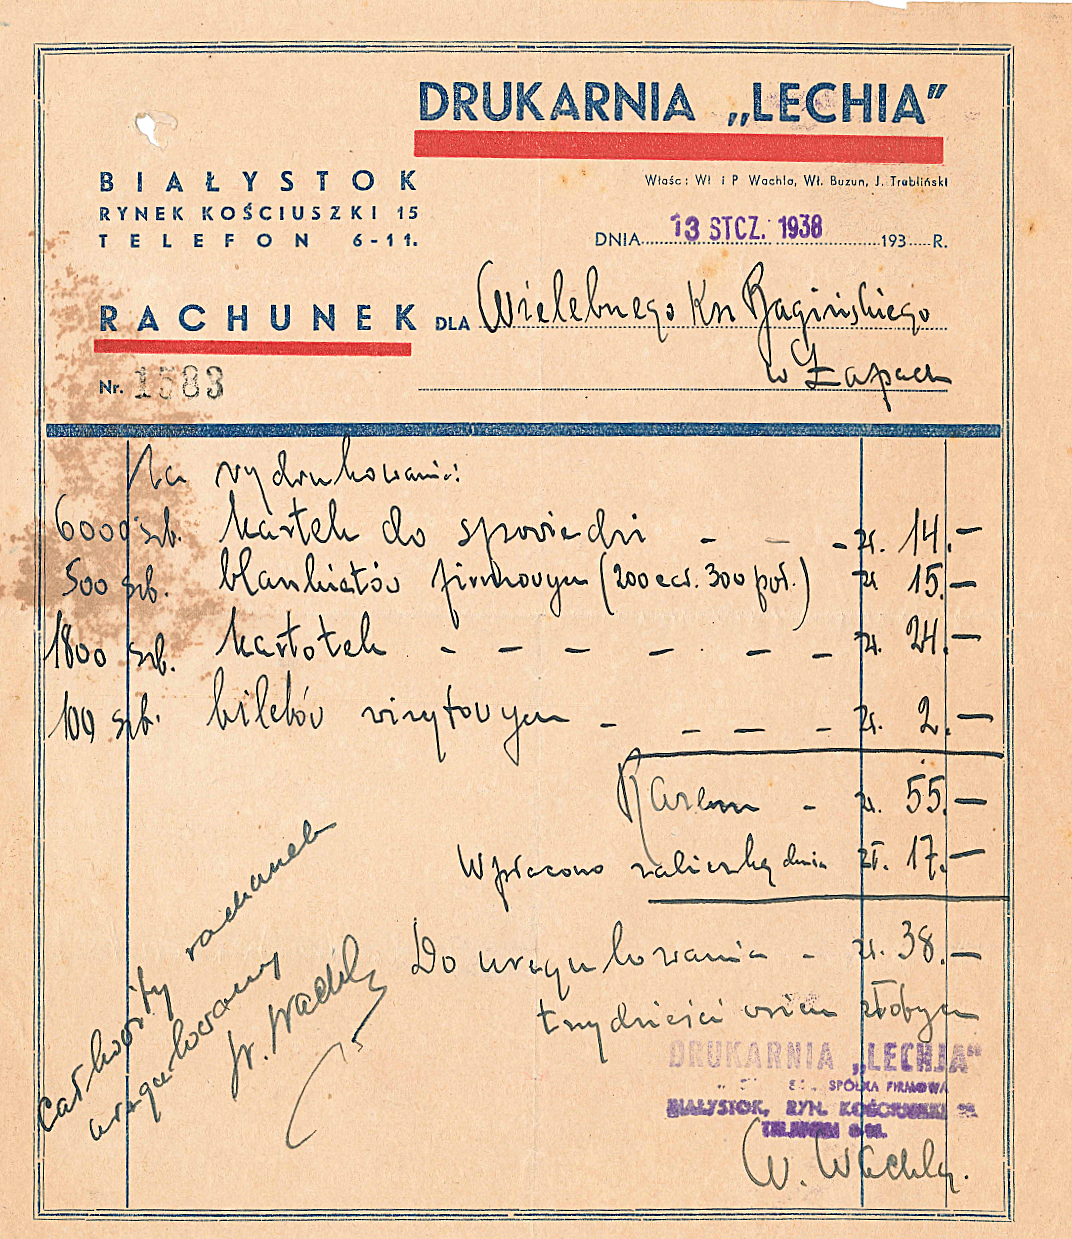 DRUKARNIA „LECHIA”
Właśc: Wł i P Wachla, Wł. Buzun, J. Trabliński
BIAŁYSTOK
RYNEK KOŚCIUSZKI 15
TELEFON 6-11.
DNIA 13 STCZ. 1938 193 R.
RACHUNEK DLA Wielebnego Ks Bagińskiego
w Łapach
Nr. 1583
Za wydrukowanie:
6000 szt. kartek do spowiedzi - - - zł. 14.—
500 szt. blankietów firmowych (200 ees. 300 poł.) zł 15.—
1800 szt. kartotek - - - - - - zł. 24.—
100 szt. biletów wizytowych - - - - zł. 2.—
Razem - zł. 55.—
Wpłacono zaliczką dnia zł. 17.—
Do uregulowania - zł. 38.—
trzydzieści osiem złotych
Całkowity rachunek
uregulowany
W. Wachla
DRUKARNIA „LECHJA”
SPÓŁKA FIRMOWA
BIAŁYSTOK, RYN. KOŚCIUSZKI 15.
TELEFON 6-11.
W. Wachla.